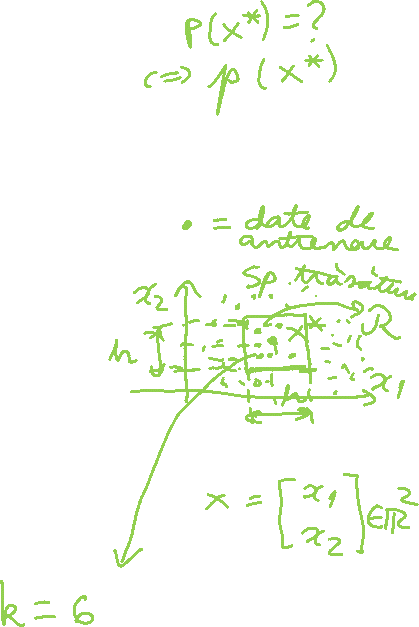 p(x*) = ?
<=> p(x*)
• = date de
antrenare
Sp. trăsături
x2
R
x*
h
x1
h
x = [x1 x2] ∈ ℝ²
k = 6